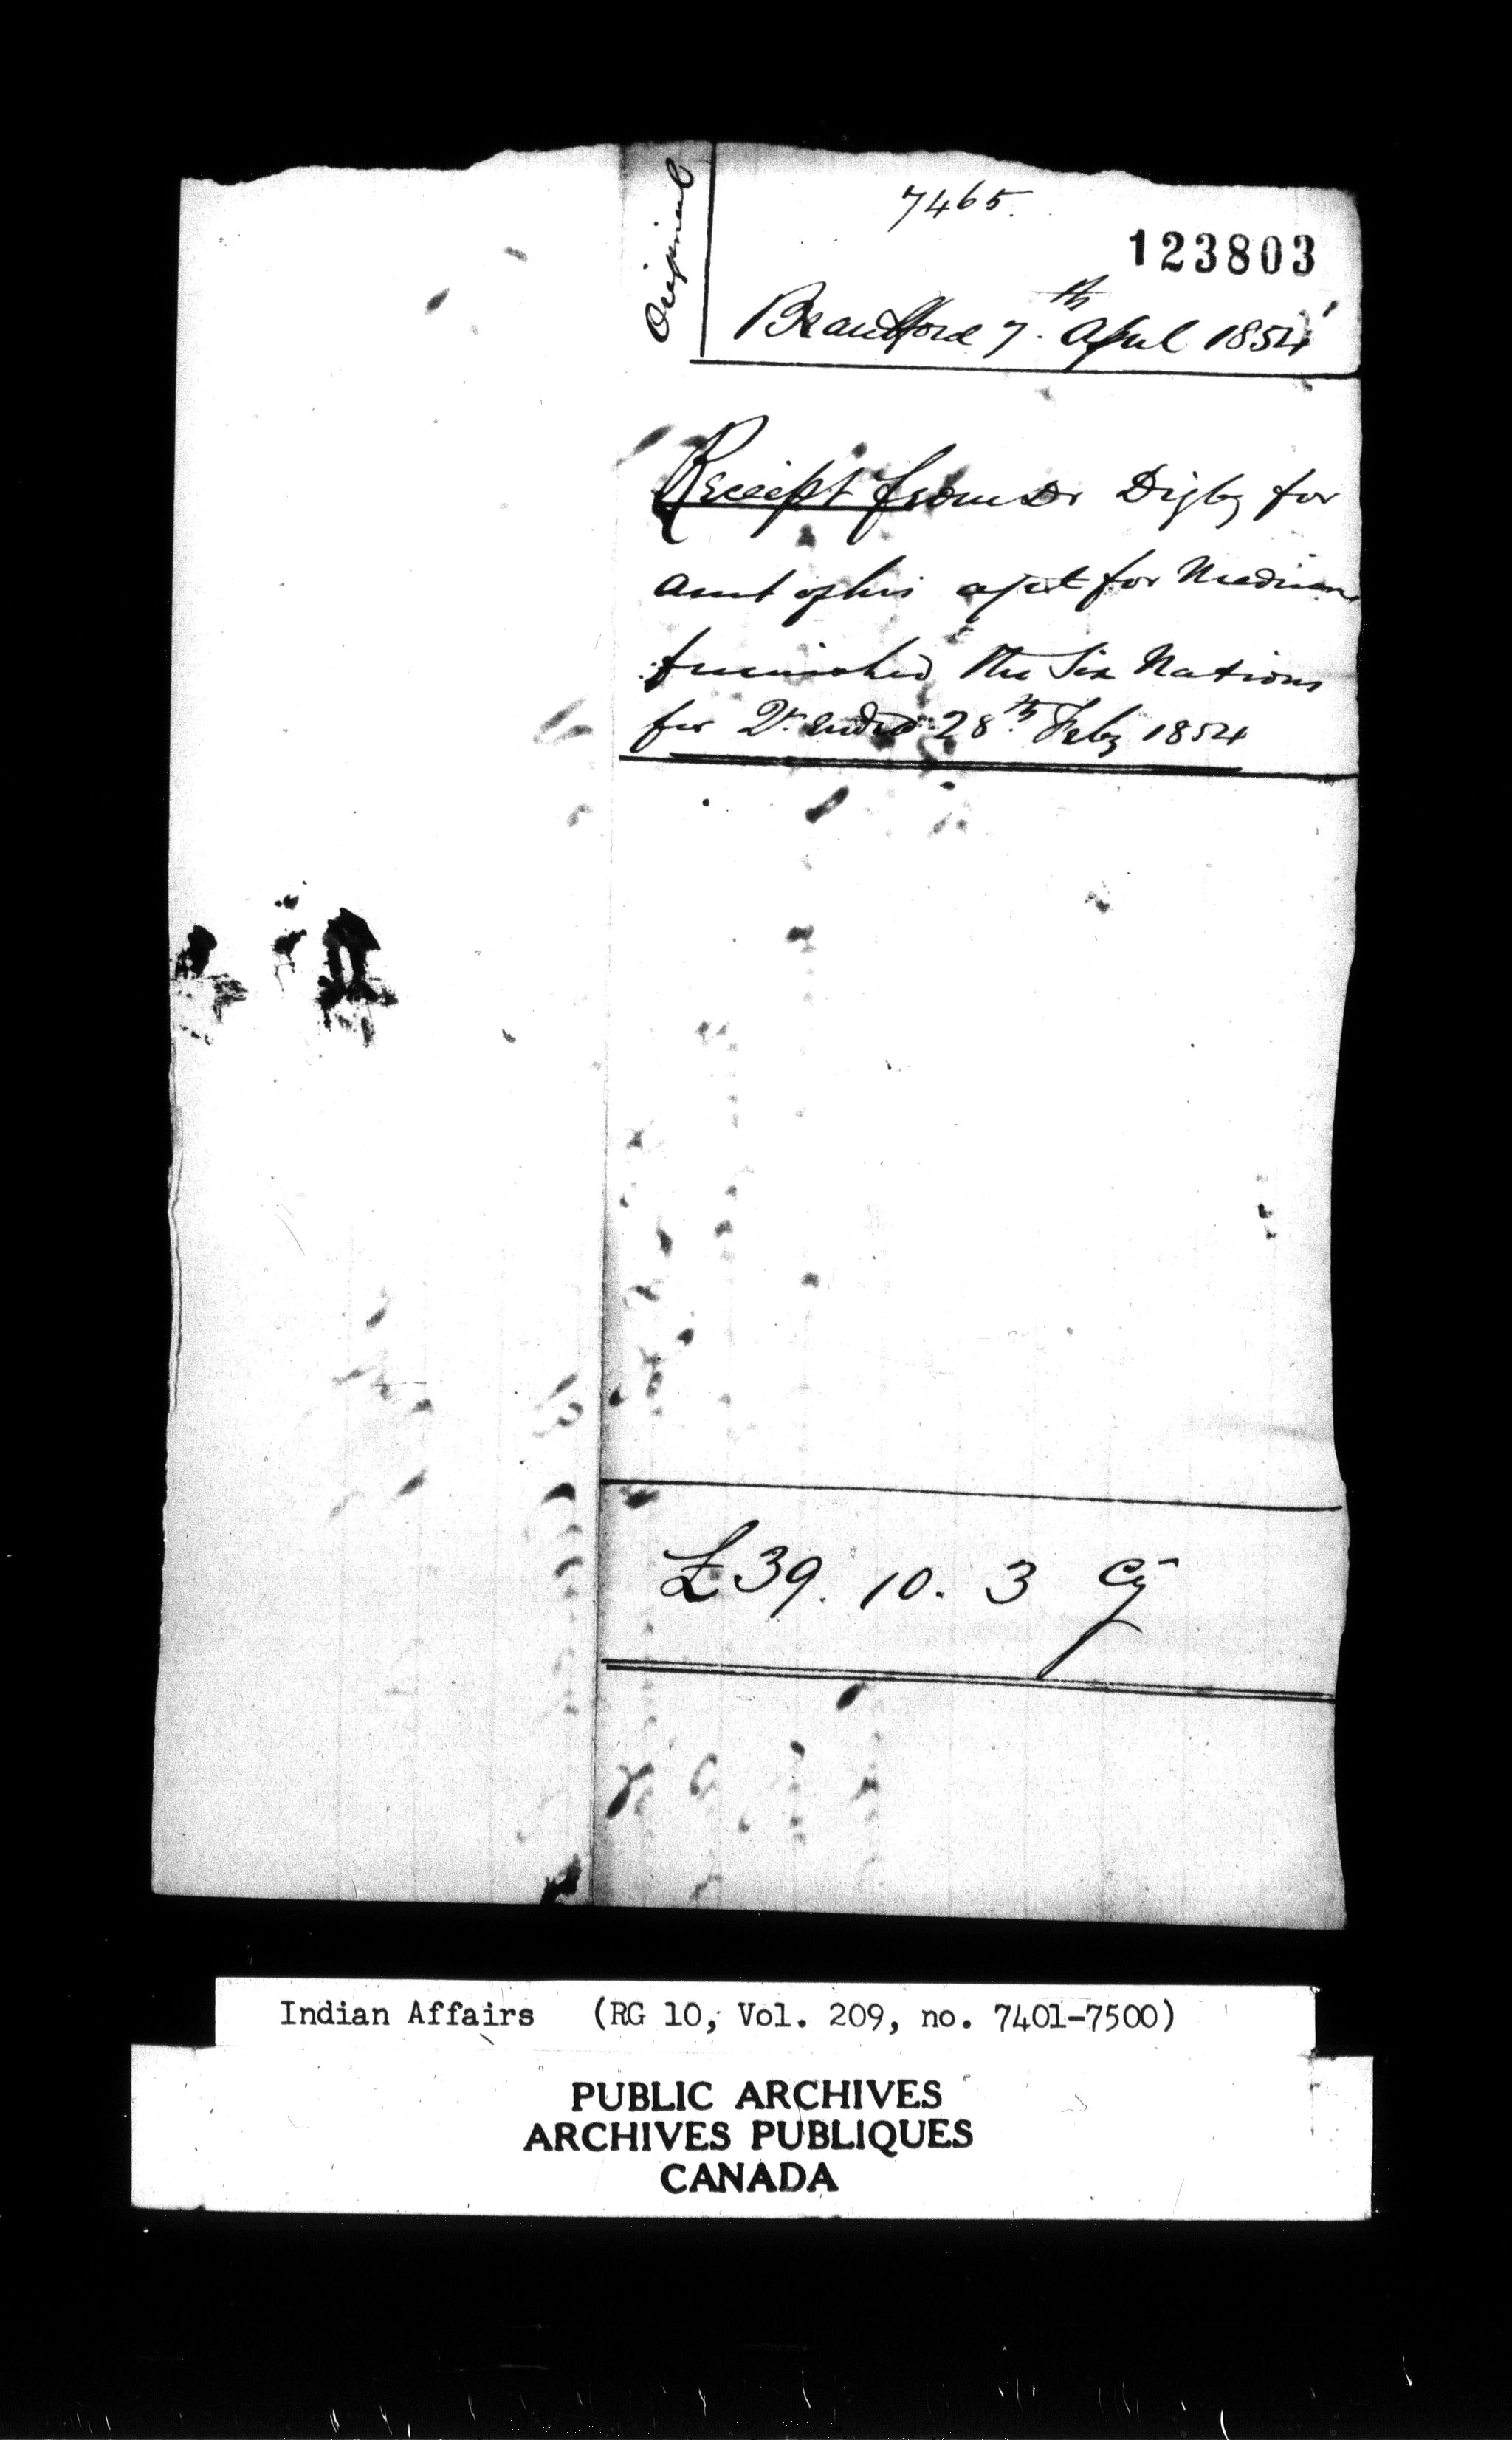 Original
7465.
123803
Brantford 7th. April 1854
Receipt from Dr Digby for
amt of his acct for Medicine
furnished the Six Nations
for Qr. ended 28th Feby 1854
£39. 10. 3 Cy
Indian Affairs (RG 10, Vol. 209, no. 7401-7500)
PUBLIC ARCHIVES
ARCHIVES PUBLIQUES
CANADA